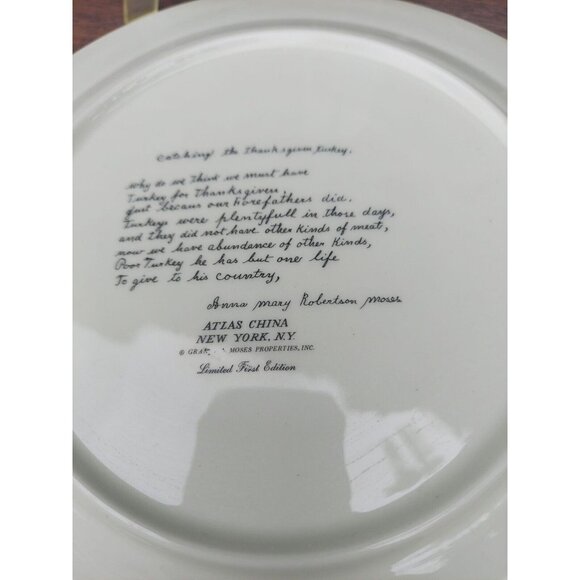 Catching the Thanksgiven Turkey.
why do we Think we must have
Turkey for Thanksgiven,
Just becaus our Forefathers did.
Turkeys were plentyfull in those days,
and they did not have other Kinds of meat,
now we have abundance of other Kinds,
Poor Turkey he has but one life
To give to his country,
Anna Mary Robertson Moses
ATLAS CHINA
NEW YORK, N.Y.
© MOSES PROPERTIES, INC.
Limited First Edition